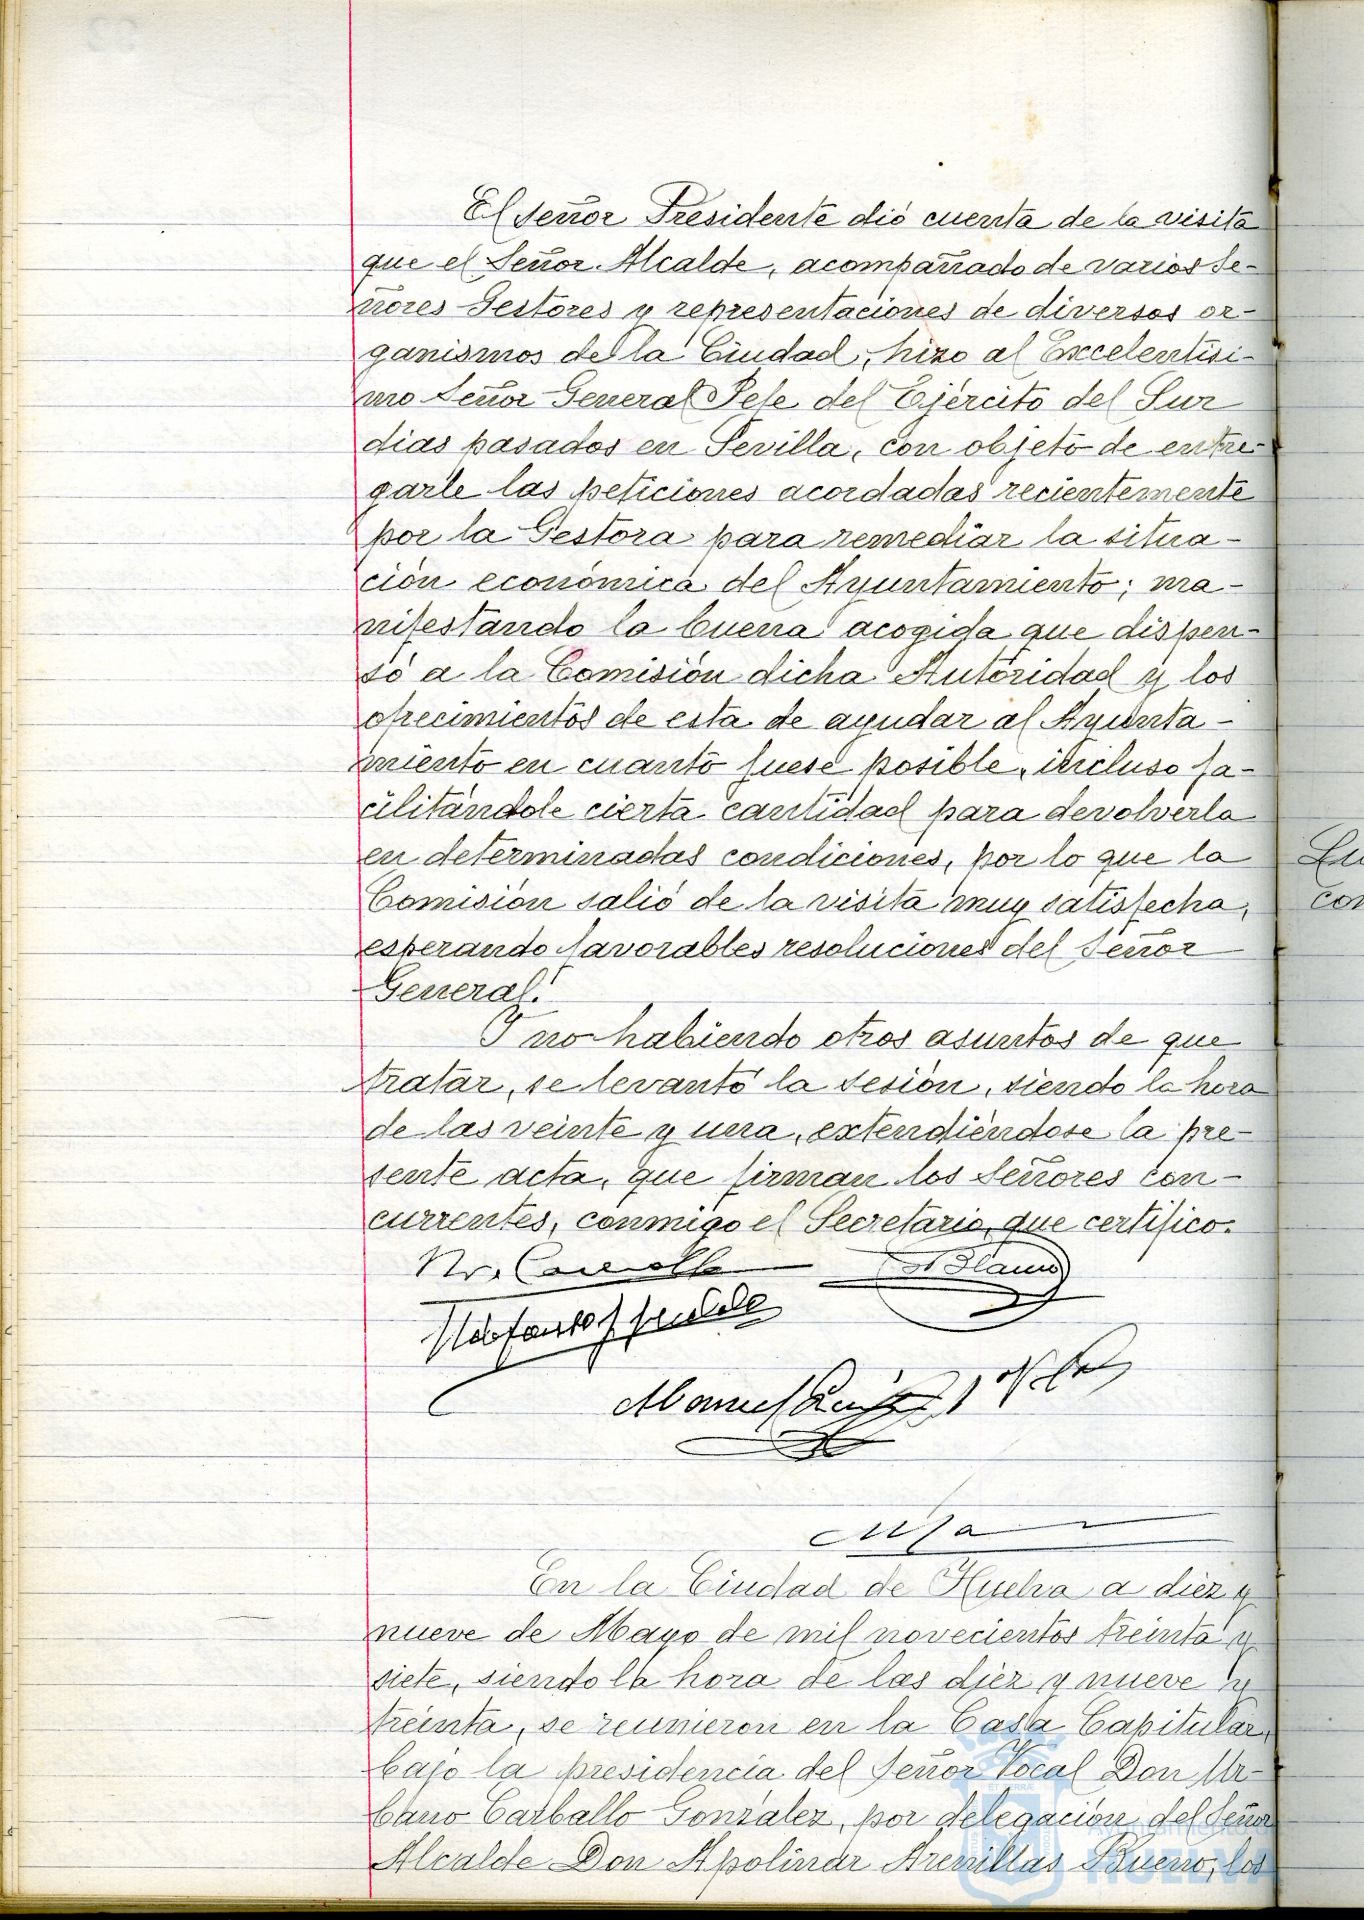 El Señor Presidente dió cuenta de la visita
que el Señor Alcalde, acompañado de varios Se-
ñores Gestores y representaciones de diversos or-
ganismos de la Ciudad, hizo al Excelentísi-
mo Señor General Jefe del Ejército del Sur
dias pasados en Sevilla, con objeto de entre-
garle las peticiones acordadas recientemente
por la Gestora para remediar la situa-
ción económica del Ayuntamiento; ma-
nifestando la buena acogida que dispen-
só a la Comisión dicha Autoridad y los
ofrecimientos de esta de ayudar al Ayunta-
miento en cuanto fuese posible, incluso fa-
cilitándole cierta cantidad para devolverla
en determinadas condiciones, por lo que la
Comisión salió de la visita muy satisfecha,
esperando favorables resoluciones del Señor
General.
Y no habiendo otros asuntos de que
tratar, se levantó la sesión, siendo la hora
de las veinte y una, extendiéndose la pre-
sente acta, que firman los Señores con-
currentes, conmigo el Secretario, que certifico.
Blanco
Ildefonso
Manuel
En la Ciudad de Huelva a diez y
nueve de Mayo de mil novecientos treinta y
siete, siendo la hora de las diez y nueve y
treinta, se reunieron en la Casa Capitular,
bajo la presidencia del Señor Vocal Don Ur-
bano Carballo González, por delegación del Señor
Alcalde Don Apolinar Arenillas Bueno, los
Ayuntamiento de
HUELVA